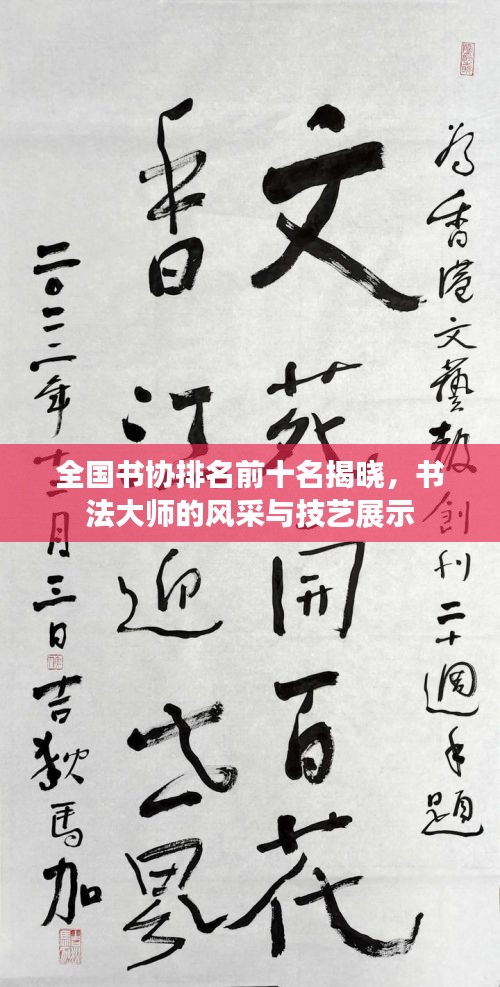 全国书协排名前十名揭晓，书
法大师的风采与技艺展示
為香港文藝報創刊二十週年題
文苑開百花
香江迎世界
二〇二二年十二月三日
吉狄馬加